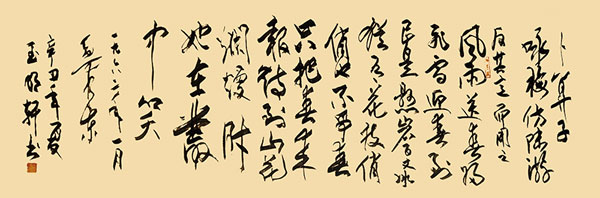 卜算子
咏梅仿陆游
反其意而用之
风雨送春归
飞雪迎春到
已是悬崖百丈冰
犹有花枝俏
俏也不争春
只把春来
报待到山花
烂熳时
她在丛
中笑
一九六一年十一月
毛泽东
辛丑年夏
玉明轩书